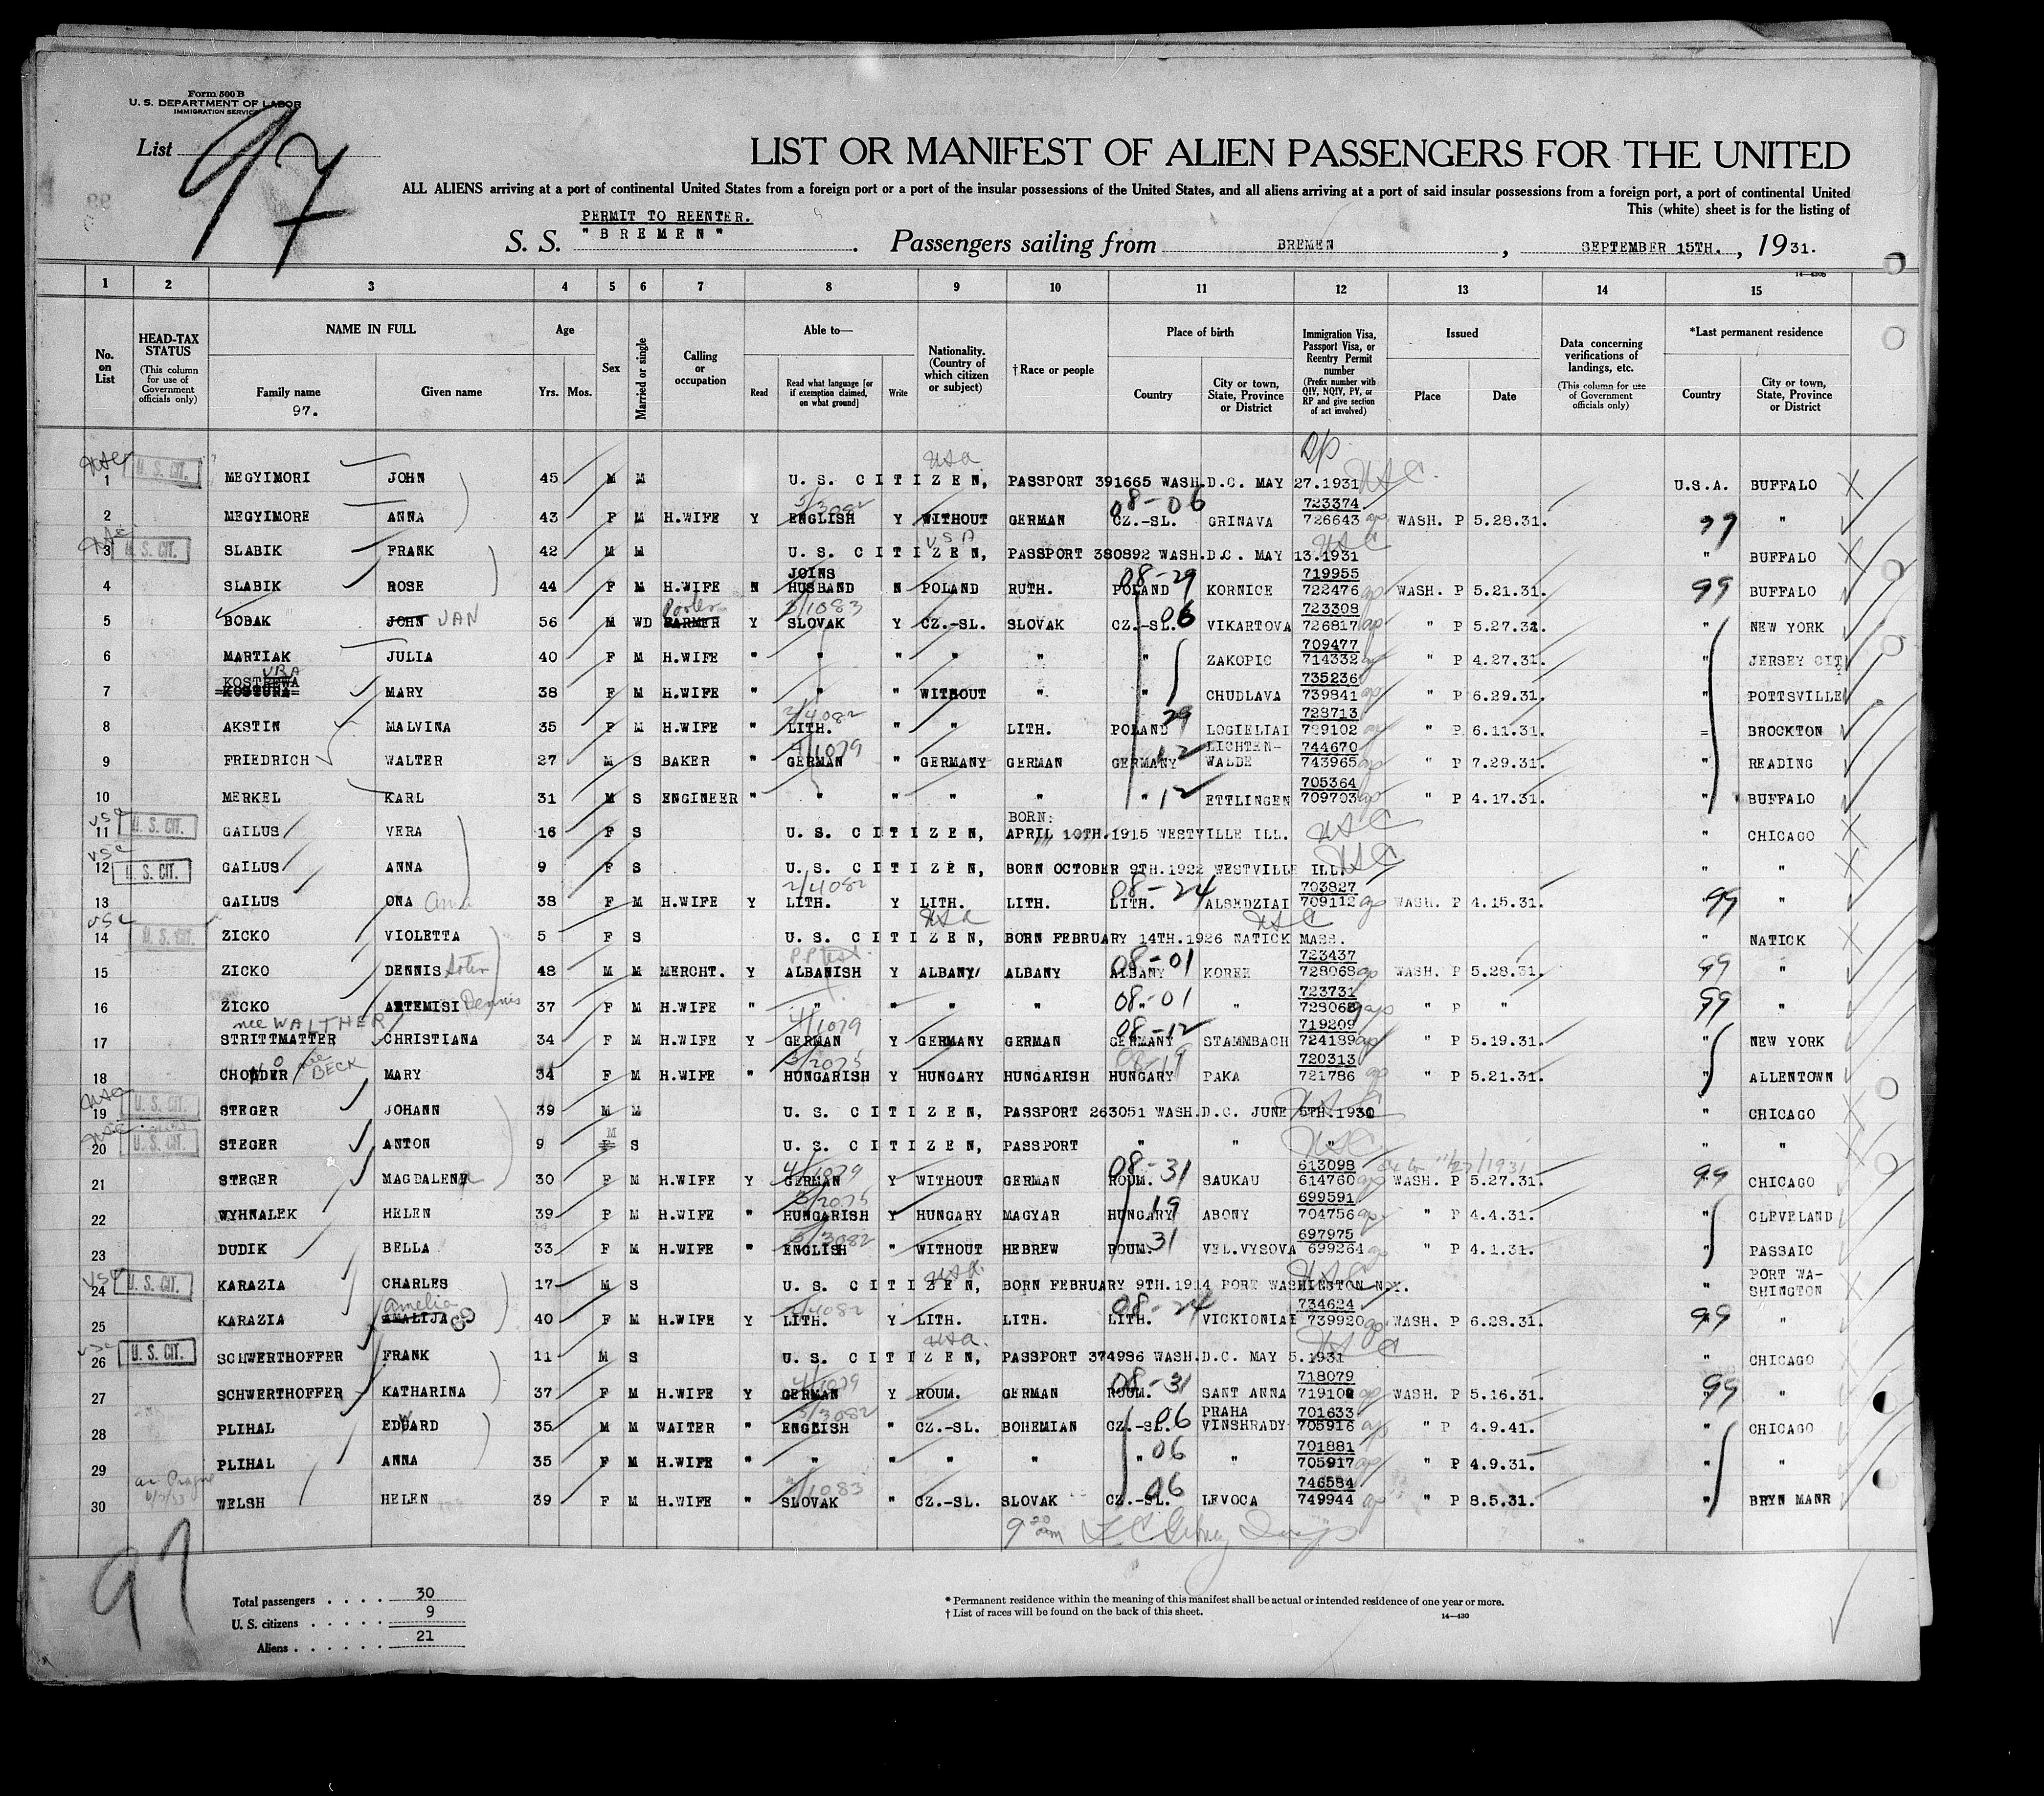 Form 500 B
U. S. DEPARTMENT OF LABOR
IMMIGRATION SERVICE
List 97
LIST OR MANIFEST OF ALIEN PASSENGERS FOR THE UNITED
ALL ALIENS arriving at a port of continental United States from a foreign port or a port of the insular possessions of the United States, and all aliens arriving at a port of said insular possessions from a foreign port, a port of continental United
This (white) sheet is for the listing of
PERMIT TO REENTER.
S. S. "BREMEN" . Passengers sailing from BREMEN , SEPTEMBER 15TH. , 1931.
1 2 3 4 5 6 7 8 9 10 11 12 13 14 15
No. on List
HEAD-TAX STATUS (This column for use of Government officials only)
NAME IN FULL
Family name 97.
Given name
Age Yrs. Mos.
Sex
Married or single
Calling or occupation
Able to—
Read
Read what language [or if exemption claimed, on what ground]
Write
Nationality. (Country of which citizen or subject)
†Race or people
Place of birth
Country
City or town, State, Province or District
Immigration Visa, Passport Visa, or Reentry Permit number (Prefix number with QIV, NQIV, PV, or RP and give section of act involved)
Issued
Place
Date
Data concerning verifications of landings, etc. (This column for use of Government officials only)
*Last permanent residence
Country
City or town, State, Province or District
1 U. S. CIT. MEGYIMORI JOHN 45 M M U. S. CITIZEN, PASSPORT 391665 WASH.D.C. MAY 27.1931 USC U.S.A. BUFFALO
2 MEGYIMORE ANNA 43 F M H.WIFE Y ENGLISH Y WITHOUT GERMAN CZ.-SL. 08-06 GRINAVA 723374 726643 WASH. P 5.28.31. "
3 U. S. CIT. SLABIK FRANK 42 M M U. S. CITIZEN, PASSPORT 380892 WASH.D.C. MAY 13.1931 USC " BUFFALO
4 SLABIK ROSE 44 F M H.WIFE N JOINS HUSBAND N POLAND RUTH. POLAND 08-29 KORNICE 719955 722476 WASH. P 5.21.31. 99 BUFFALO
5 BOBAK JOHN JAN 56 M WD FARMER Porter Y SLOVAK Y CZ.-SL. SLOVAK CZ.-SL. 06 VIKARTOVA 723308 726817 " P 5.27.31. " NEW YORK
6 MARTIAK JULIA 40 F M H.WIFE " " " " " " ZAKOPIC 709477 714332 " P 4.27.31. " JERSEY CITY
7 KOSTURA KOSTREWA VRA MARY 38 F M H.WIFE " " " WITHOUT " " CHUDLAVA 735236 739841 " P 6.29.31. " POTTSVILLE
8 AKSTIN MALVINA 35 F M H.WIFE " LITH. " " LITH. POLAND 29 LOGIELIAI 728713 729102 " P 6.11.31. = BROCKTON
9 FRIEDRICH WALTER 27 M S BAKER " GERMAN " GERMANY GERMAN GERMANY 12 LICHTEN-WALDE 744670 743965 " P 7.29.31. " READING
10 MERKEL KARL 31 M S ENGINEER " " " " " " 12 ETTLINGEN 705364 709703 " P 4.17.31. " BUFFALO
11 U. S. CIT. GAILUS VERA 16 F S U. S. CITIZEN, BORN: APRIL 10TH.1915 WESTVILLE ILL. USC " CHICAGO
12 U. S. CIT. GAILUS ANNA 9 F S U. S. CITIZEN, BORN OCTOBER 9TH.1922 WESTVILLE ILL. USC " "
13 GAILUS ONA 38 F M H.WIFE Y LITH. Y LITH. LITH. LITH. 08-24 ALSEDZIAI 703827 709112 WASH. P 4.15.31. 99 "
14 U. S. CIT. ZICKO VIOLETTA 5 F S U. S. CITIZEN, BORN FEBRUARY 14TH.1926 NATICK MASS. USC " NATICK
15 ZICKO DENNIS 48 M M MERCHT. Y ALBANISH Y ALBANY ALBANY ALBANY 08-01 KOREE 723437 728068 WASH. P 5.28.31. 99 "
16 ZICKO ARTEMISI Dennis 37 F M H.WIFE " " " " " " 08-01 " 723731 " P " 99 "
17 nee WALTHER STRITTMATTER CHRISTIANA 34 F M H.WIFE Y GERMAN Y GERMANY GERMAN GERMANY 08-12 STAMMBACH 719209 724189 " P 5.19.31. " NEW YORK
18 CHONDER nee BECK MARY 34 F M H.WIFE " HUNGARISH Y HUNGARY HUNGARISH HUNGARY 08-19 PAKA 720313 721786 " P 5.21.31. " ALLENTOWN
19 U. S. CIT. STEGER JOHANN 39 M M U. S. CITIZEN, PASSPORT 263051 WASH.D.C. JUNE 5TH.1930 " CHICAGO
20 U. S. CIT. STEGER ANTON 9 M S U. S. CITIZEN, PASSPORT " " " USC " "
21 STEGER MAGDALENE 30 F M H.WIFE Y GERMAN Y WITHOUT GERMAN ROUM. 08-31 SAUKAU 613098 614760 WASH. P 5.27.31. 11/27/1931 99 CHICAGO
22 WYHNALEK HELEN 39 F M H.WIFE " HUNGARISH Y HUNGARY MAGYAR HUNGARY 19 ABONY 699591 704756 " P 4.4.31. " CLEVELAND
23 DUDIK BELLA 33 F M H.WIFE " ENGLISH " WITHOUT HEBREW ROUM. 31 VEL.VYSOVA 697975 699264 " P 4.1.31. " PASSAIC
24 U. S. CIT. KARAZIA CHARLES 17 M S U. S. CITIZEN, BORN FEBRUARY 9TH.1914 PORT WASHINGTON N.Y. USC " PORT WA-SHINGTON
25 KARAZIA AMALIJA Amelia 40 F M H.WIFE Y LITH. Y LITH. LITH. LITH. 08-24 VICKIONIAI 734624 739920 WASH. P 6.23.31. 99 "
26 U. S. CIT. SCHWERTHOFFER FRANK 11 M S U. S. CITIZEN, PASSPORT 374936 WASH.D.C. MAY 5.1931 USC " CHICAGO
27 SCHWERTHOFFER KATHARINA 37 F M H.WIFE Y GERMAN Y ROUM. GERMAN ROUM. 08-31 SANT ANNA 718079 WASH. P 5.16.31. 99 "
28 PLIHAL EDWARD 35 M M WAITER " ENGLISH " CZ.-SL. BOHEMIAN CZ.-SL. 06 PRAHA VINSHRADY 701633 705916 " P 4.9.41. " CHICAGO
29 PLIHAL ANNA 35 F M H.WIFE " " " " " " 06 " 701881 705917 " P 4.9.31. " "
30 WELSH HELEN 39 F M H.WIFE " SLOVAK " CZ.-SL. SLOVAK CZ.-SL. 06 LEVOCA 746584 749944 " P 8.5.31. " BRYN MANR
97
Total passengers . . . . 30
U. S. citizens . . . . . 9
Aliens . . . . . . 21
* Permanent residence within the meaning of this manifest shall be actual or intended residence of one year or more.
† List of races will be found on the back of this sheet.
14—430